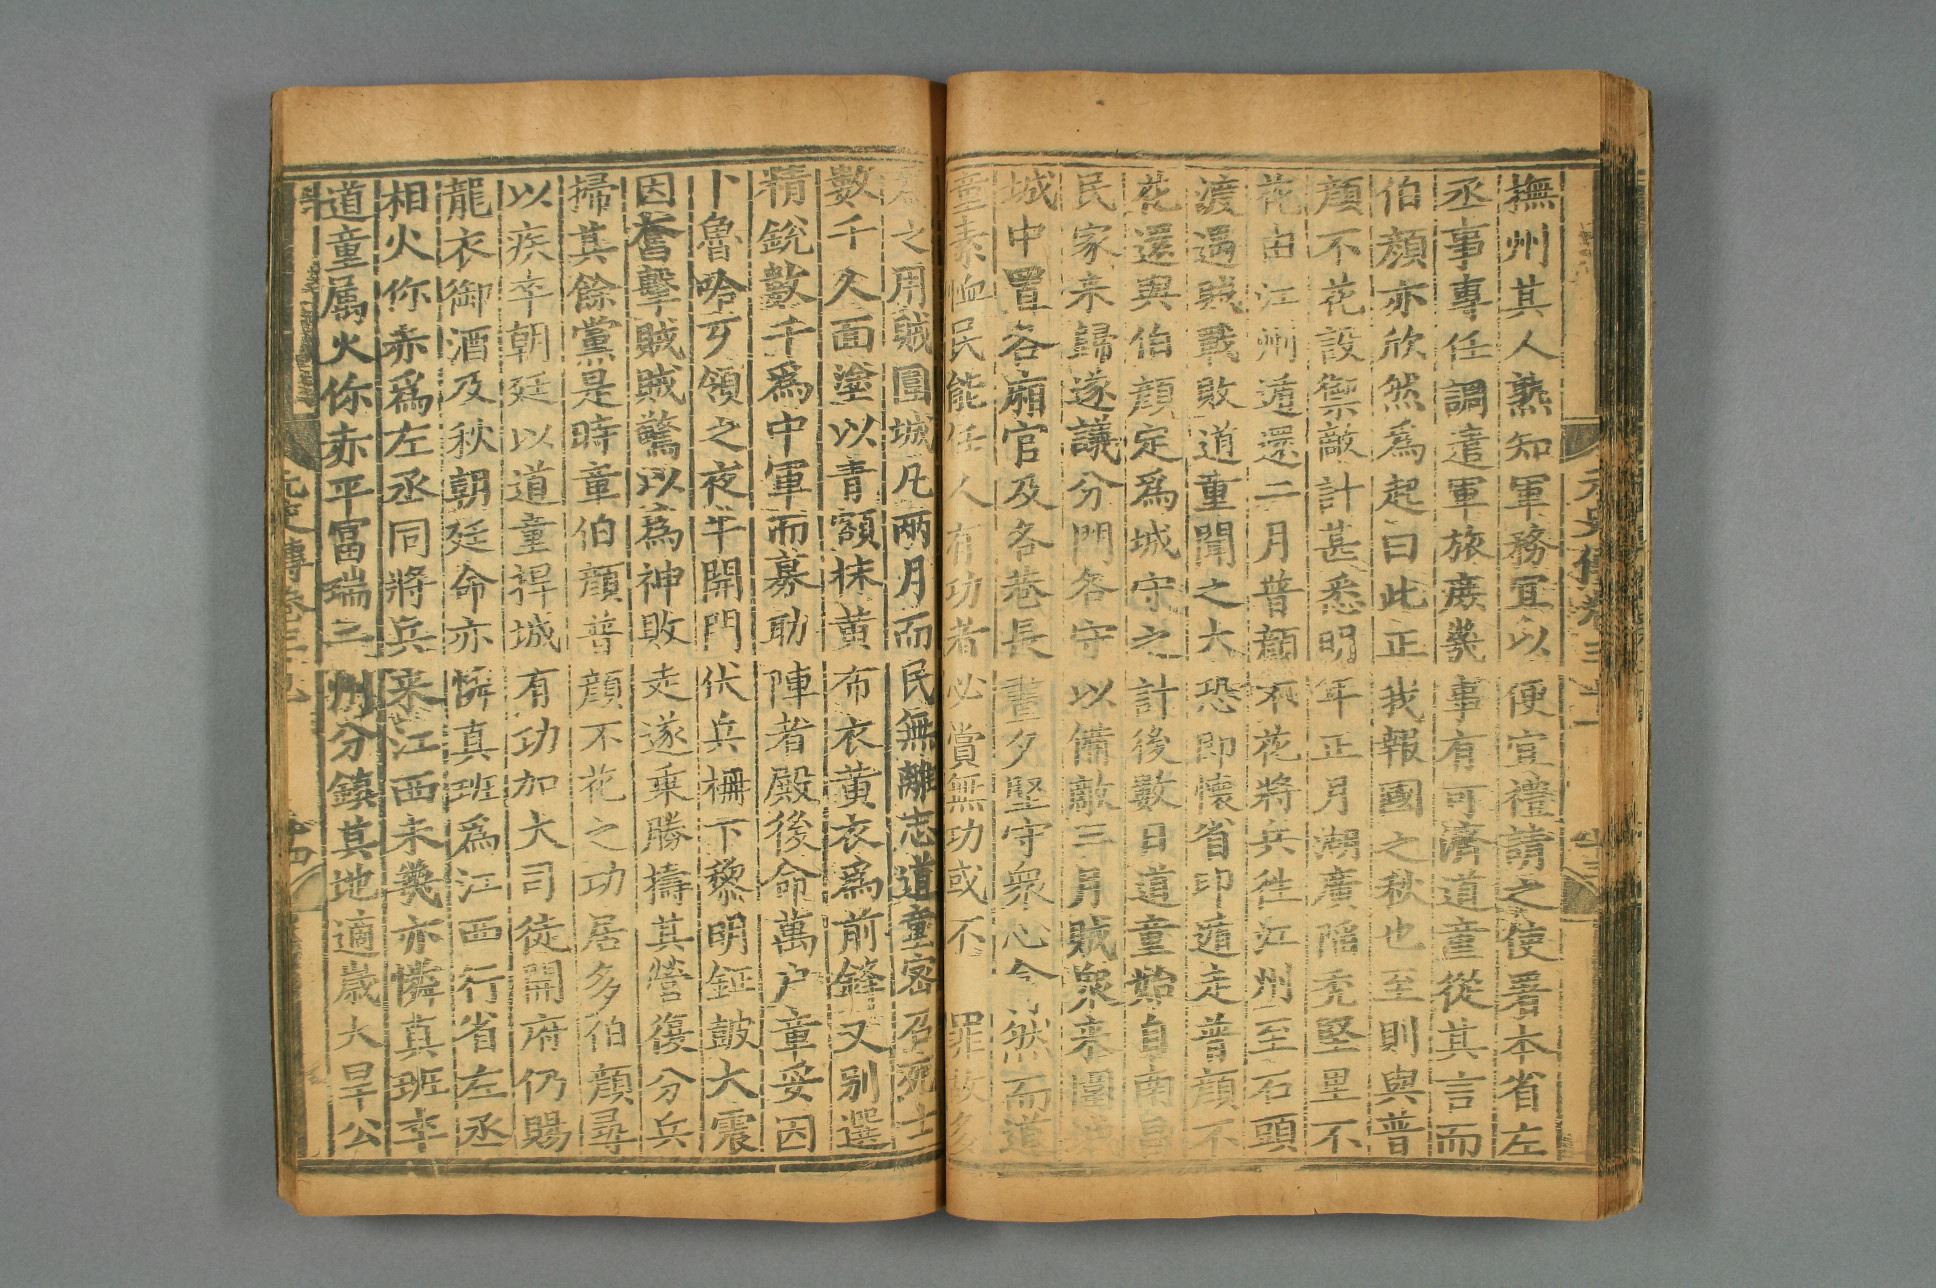 撫州其人熟知軍務冝以便宜禮請之使署本省左
丞事專任調遣軍旅庻㡬事有可濟道童從其言而
伯顔亦欣然爲起曰此正我報國之秋也至則與普
顔不花設禦敵計甚悉明年正月湖廣陷禿堅里不
花由江州遁還二月普顔不花將兵徃江州至石頭
渡遇賊戰敗道童聞之大恐即懷省印遁走普顔不
花還與伯顔定爲城守之計後數日道童始自南昌
民家来歸遂議分門各守以備敵三月賊衆来圍城
城中置各廂官及各巷長晝夕堅守衆心翕然而道
童素恤民能任人有功者必賞無功或不罪故多
之用賊圍城凡兩月而民無離志道童宻召死士
數千人面塗以青額抹黄布衣黄衣爲前鋒又别選
精銳數千爲中軍而募助陣者殿後命萬户章妥因
卜魯哈歹領之夜半開門伏兵柵下黎明鉦鼓大震
因奮擊賊賊驚以爲神敗走遂乗勝擣其營復分兵
掃其餘黨是時章伯顔普顔不花之功居多伯顔尋
以疾卒朝廷以道童捍城有功加大司徒開府仍賜
龍衣御酒及秋朝廷命亦憐真班爲江西行省左丞
相火你赤爲左丞同將兵来江西未㡬亦憐真班卒
道童属火你赤平富瑞二州分鎮其地適歳大旱公
元史傳卷三十一